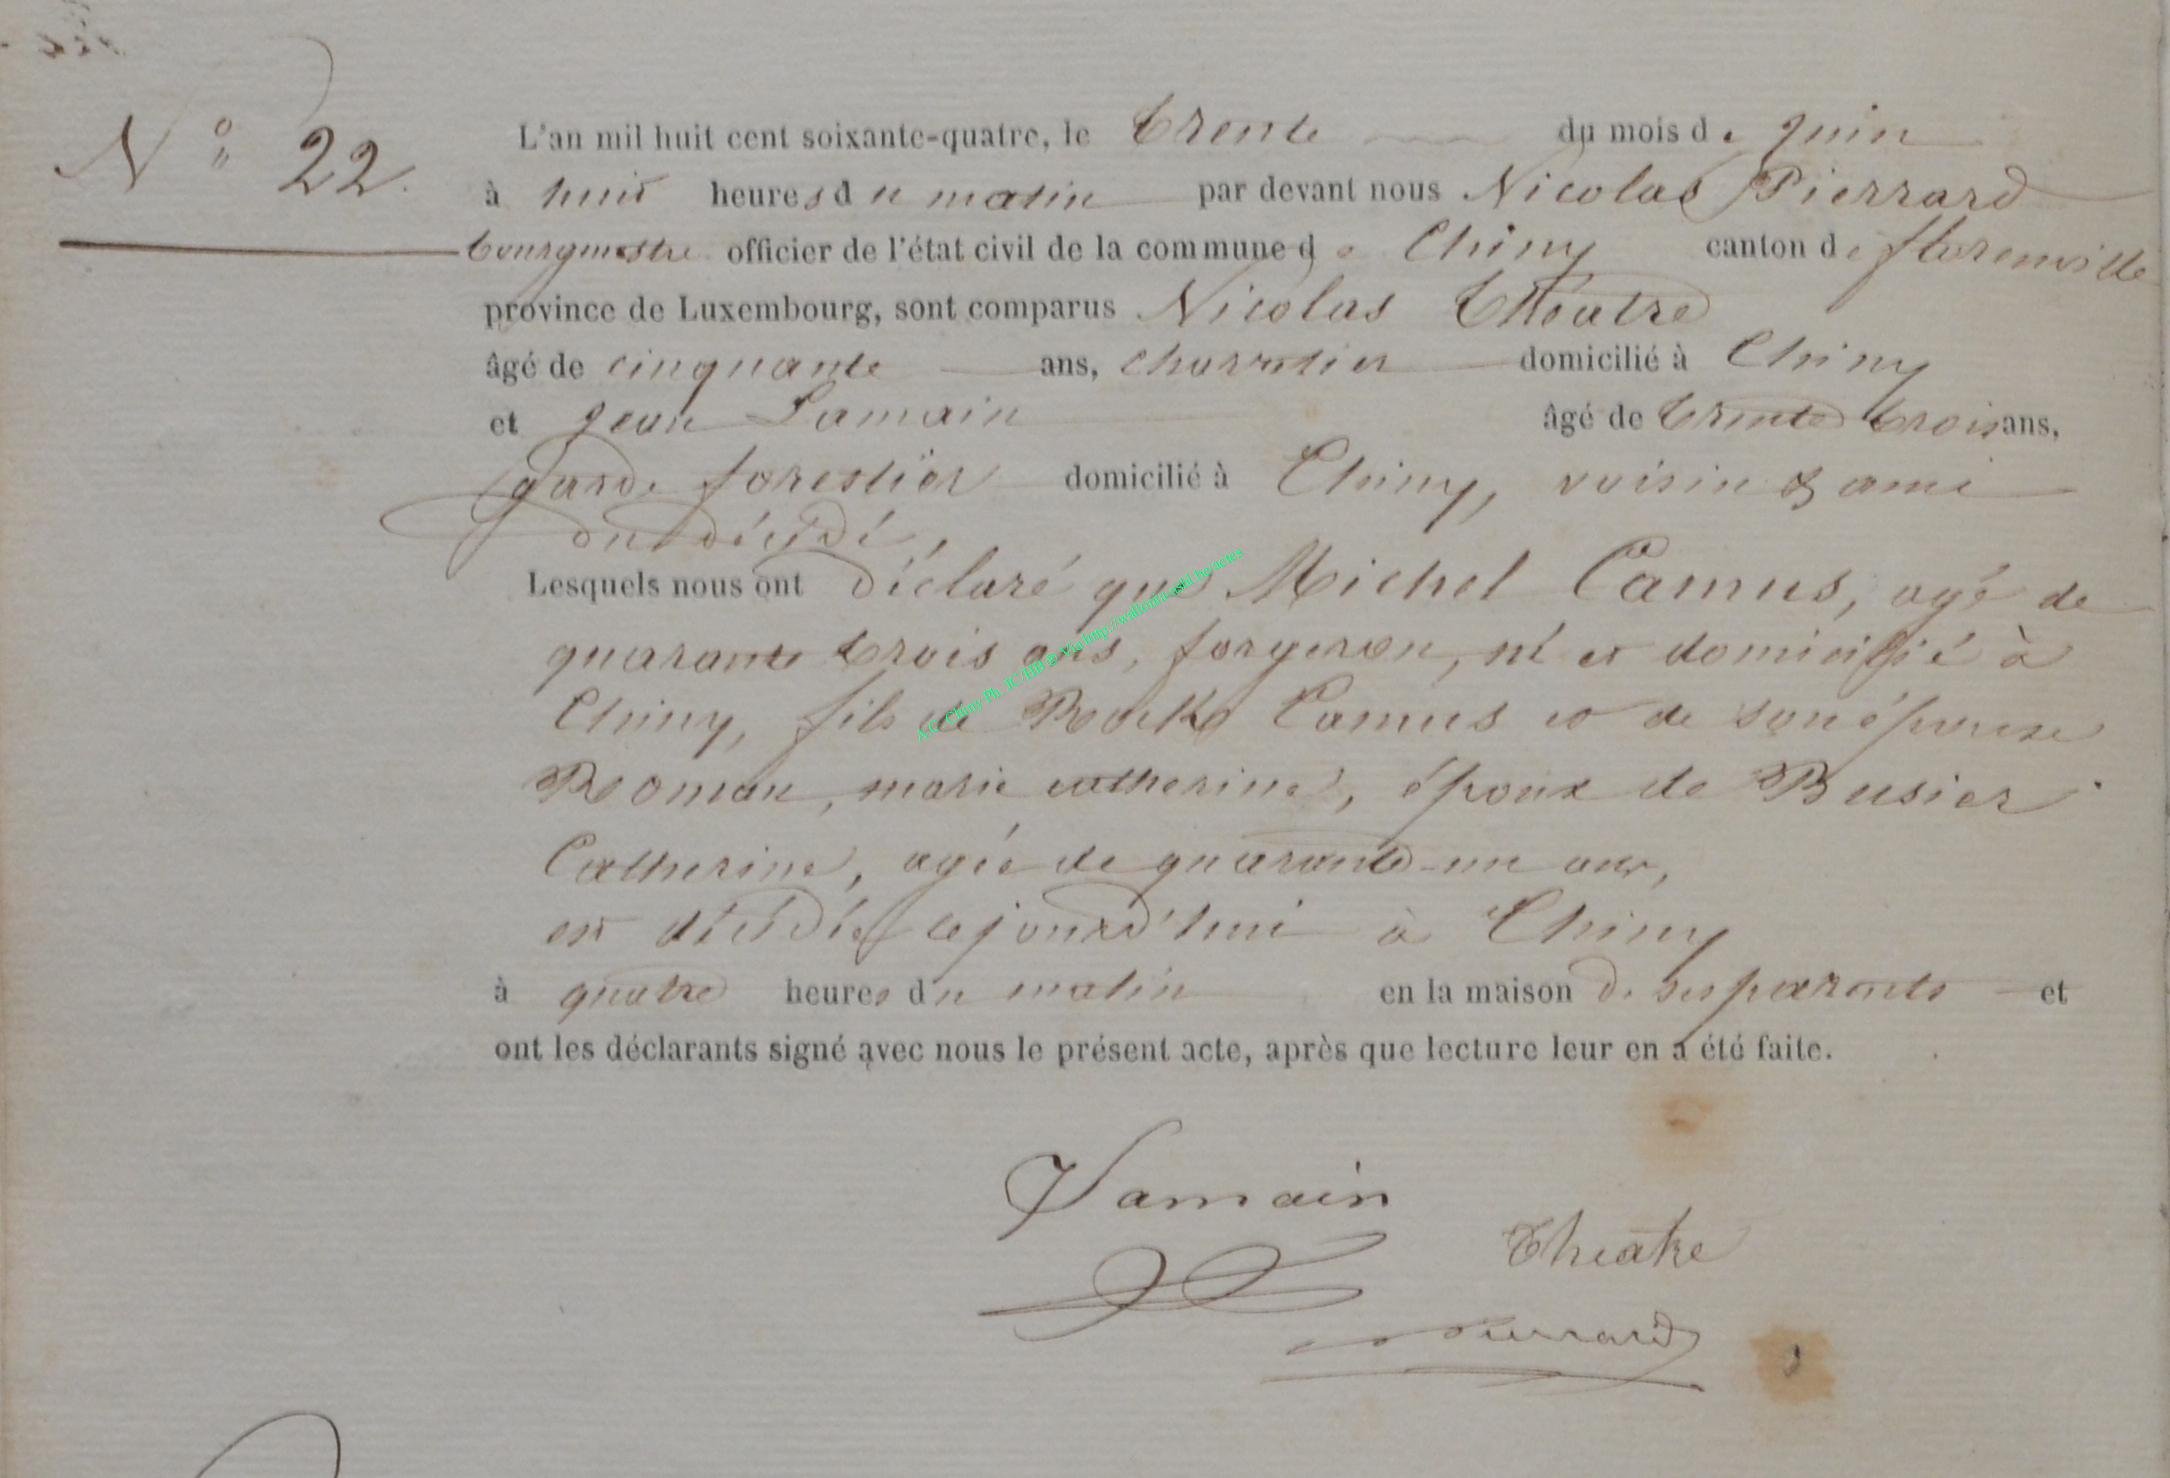 N° 22.
L'an mil huit cent soixante-quatre, le trente du mois de juin
à huit heures du matin par devant nous Nicolas Pierrard
bourgmestre officier de l'état civil de la commune de Chiny canton de florenville
province de Luxembourg, sont comparus Nicolas Théatre
âgé de cinquante ans, charretier domicilié à Chiny
et jean Lamain âgé de trente trois ans,
garde forestier domicilié à Chiny, voisin & ami
du décédé,
Lesquels nous ont déclaré que Michel Camus, agé de
quarante trois ans, forgeron, né et domicilié à
Chiny, fils de Rock Camus et de son épouse
Roman, marie catherine, époux de Busier
Catherine, agée de quarante-un ans,
est décédé cejourd'hui à Chiny
à quatre heures du matin en la maison de ses parents et
ont les déclarants signé avec nous le présent acte, après que lecture leur en a été faite.
A.C. Chiny Ph. JC/HB & Via http://wallonia-asbl.be/actes
JLamain
Theatre
Pierrard